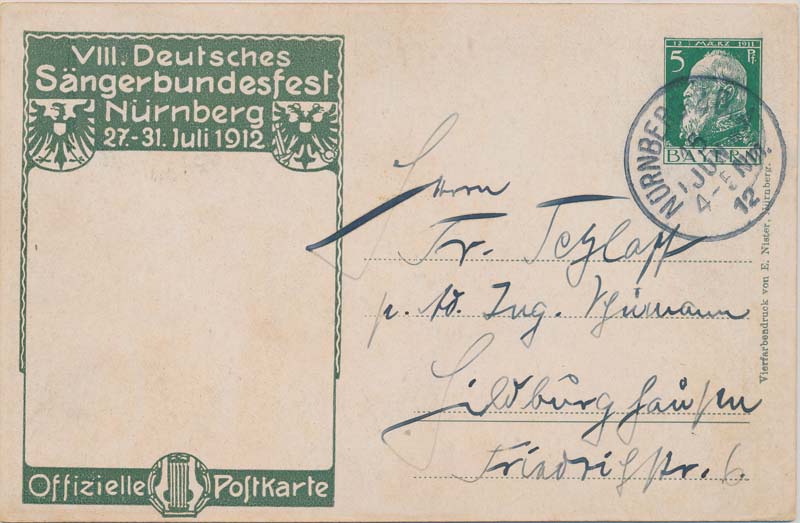 VIII. Deutsches
Sängerbundesfest
Nürnberg
27.-31. Juli 1912
Offizielle Postkarte
12 MÄRZ 1911
5 Pf.
BAYERN
NÜRNBERG
1 JUL
4-5 Nm.
12
Herrn
Fr. Tetzlaff
p. Ad. Ing.
Hildburghausen
Friedrichstr. 6.
Vierfarbendruck von E. Nister, Nürnberg.